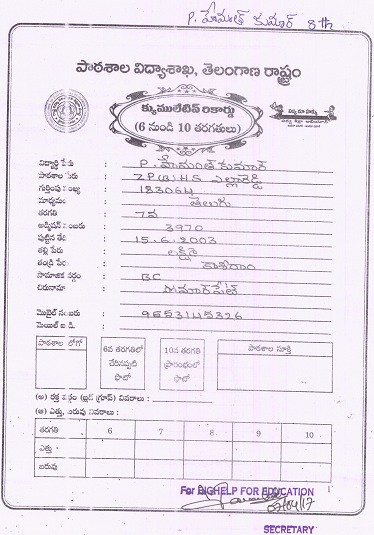 P. హేమంత్ కుమార్ 8th
పాఠశాల విద్యాశాఖ, తెలంగాణ రాష్ట్రం
క్యుములేటివ్ రికార్డు
(6 నుండి 10 తరగతులు)
విద్యార్థి పేరు : P. హేమంత్ కుమార్
పాఠశాల పేరు : ZP(B)HS ఎల్లారెడ్డి
గుర్తింపు సంఖ్య : 183064
మాధ్యమం : తెలుగు
తరగతి : 7వ
అడ్మిషన్ నెంబరు : 3970
పుట్టిన తేది : 15.6.2003
తల్లి పేరు : లక్ష్మి
తండ్రి పేరు : కాశీరాం
సామాజిక వర్గం : BC
చిరునామా :
మొబైల్ నంబరు : 9653145326
మెయిల్ ఐ.డి. :
పాఠశాల లోగో
6వ తరగతిలో చేరినప్పటి ఫొటో
10వ తరగతి ప్రారంభంలో ఫొటో
పాఠశాల సూక్తి
(అ) రక్త వర్గం (బ్లడ్ గ్రూప్) వివరాలు :
(ఆ) ఎత్తు, బరువు వివరాలు :
తరగతి 6 7 8 9 10
ఎత్తు
బరువు
For BIGHELP FOR EDUCATION
1
07/04/17
SECRETARY